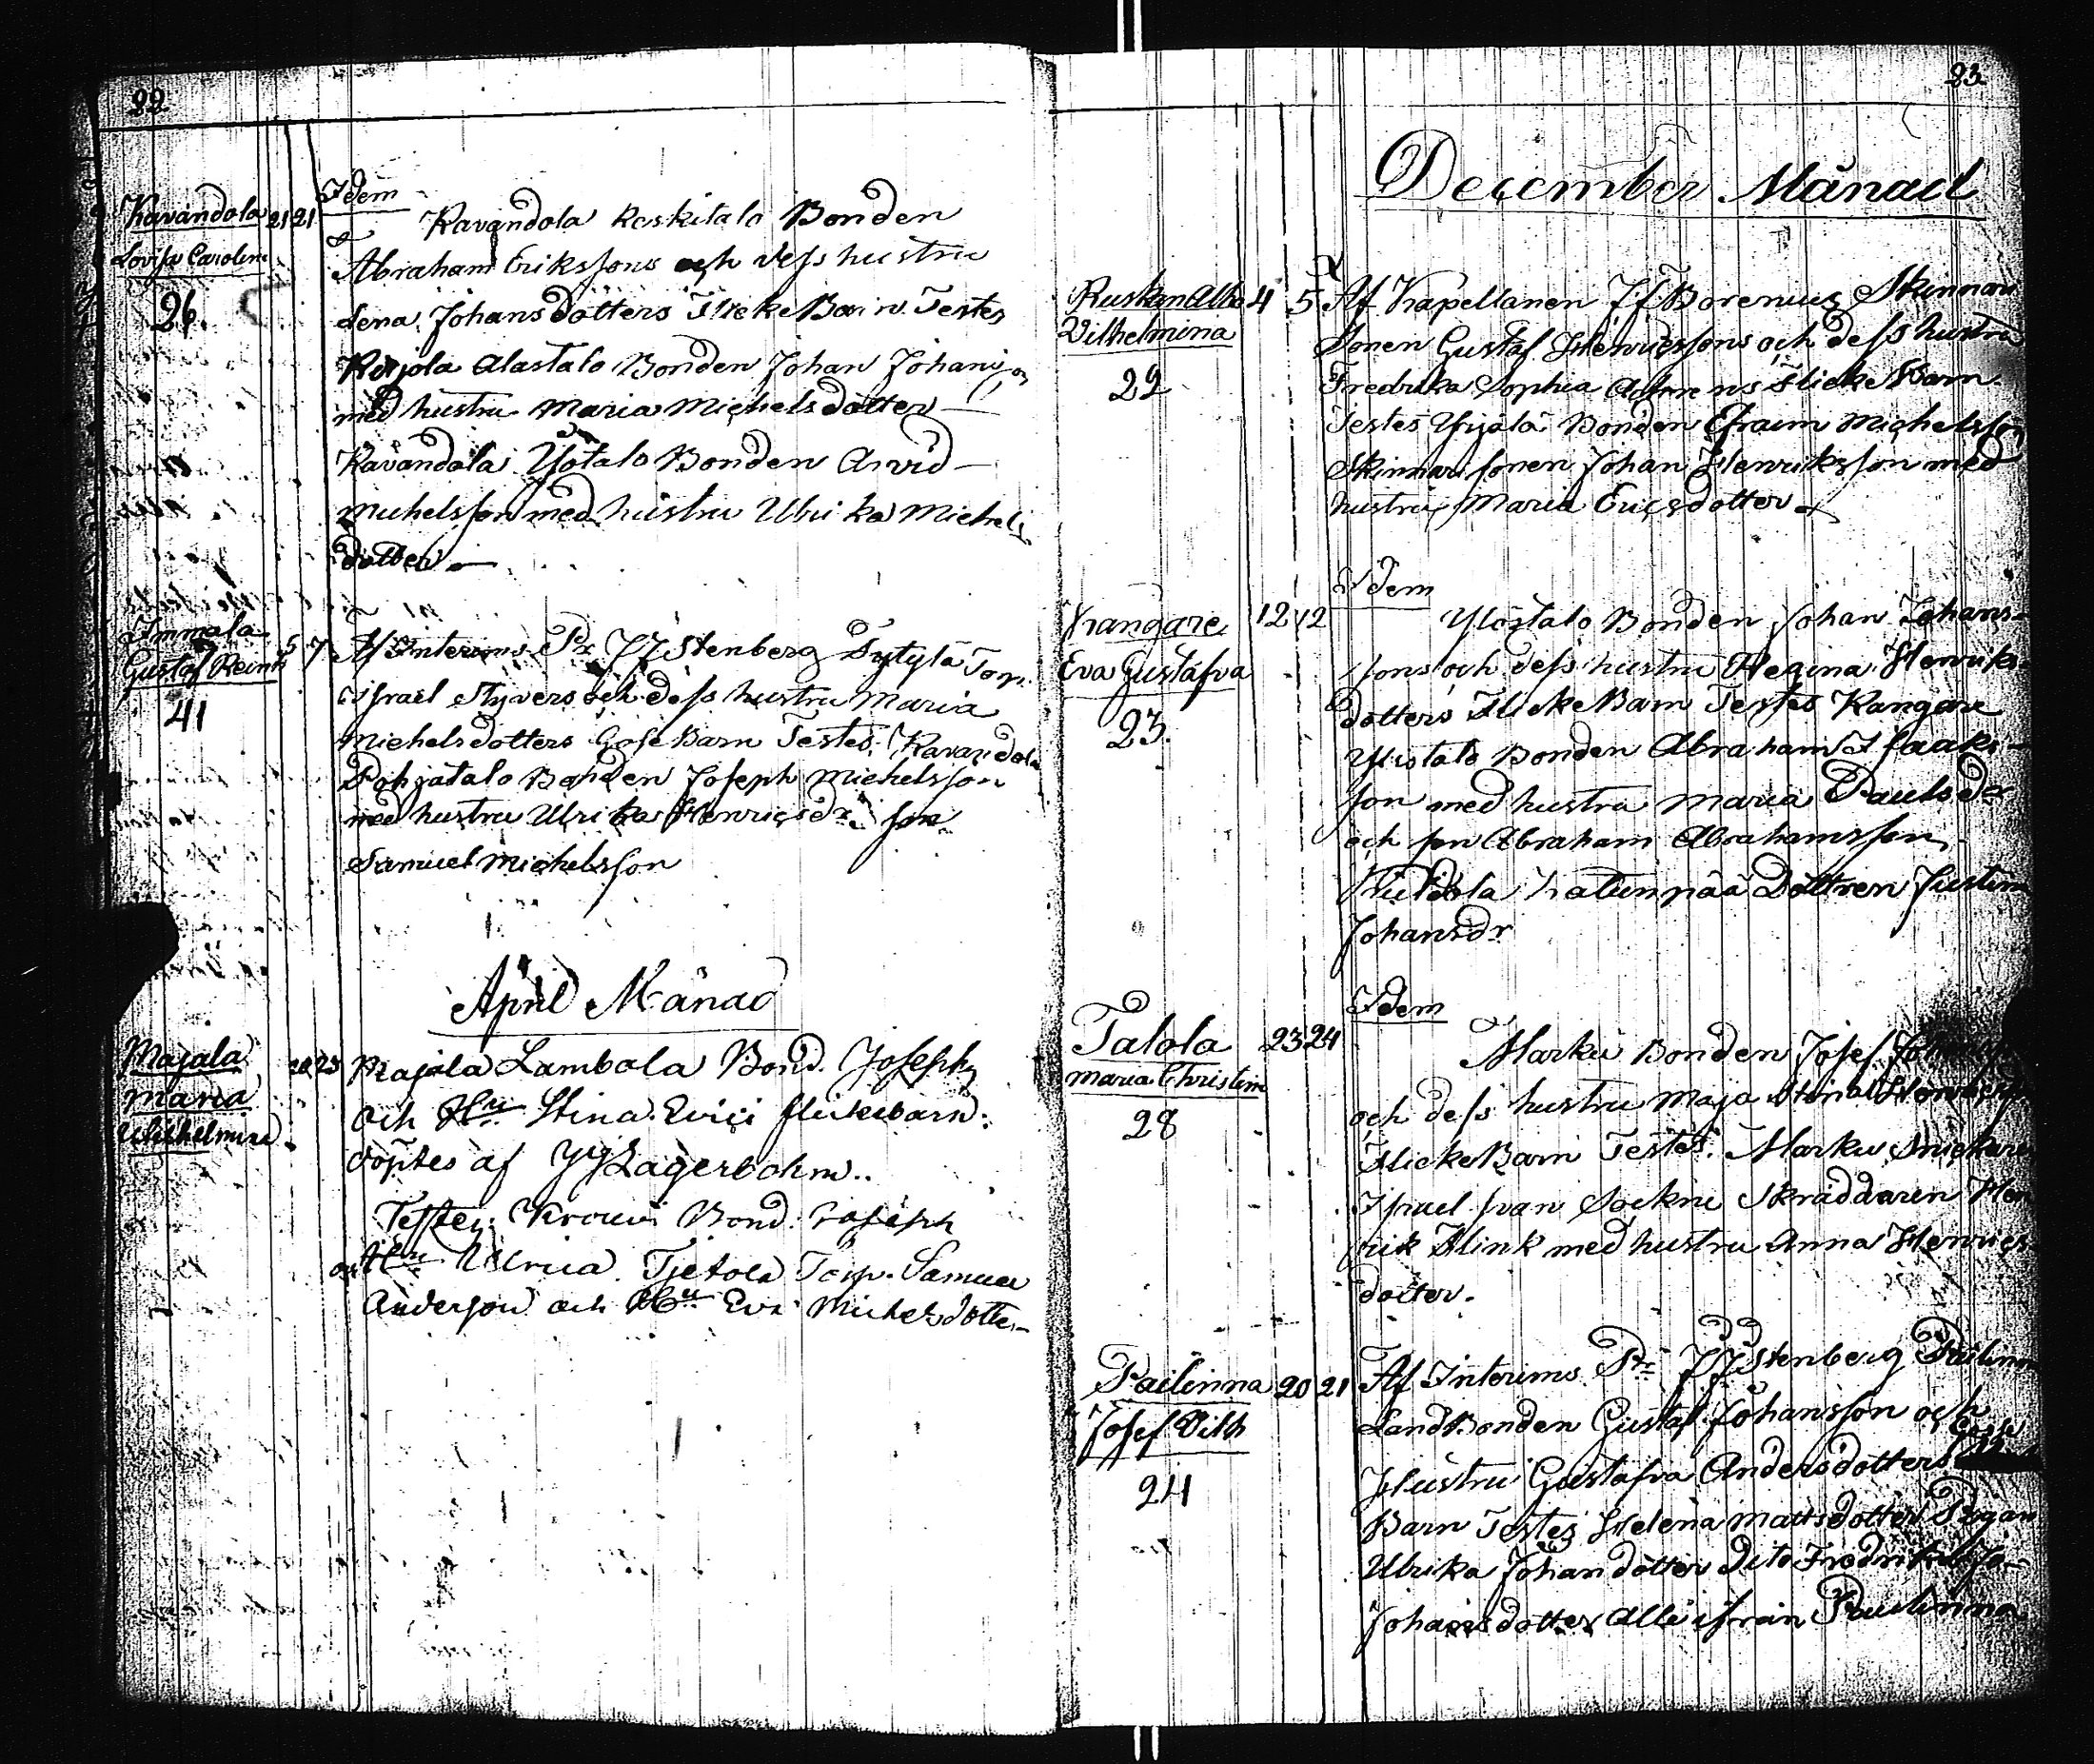 22
Idem
Kavandola 21 21
Lovisa Carolin
26.
Kavandola Keskitalo Bonden
Abraham Erikssons och dess hustru
Lena Johansdotters Flicke Barn Testes
Kirjola Alastalo Bonden Johan Johansson
med hustru Maria Michelsdotter —
Kavandola Yötalo Bonden Arvid —
Michelsson med hustru Ulrika Michels
dotter —
Immola 5 7
Gustaf Reinh
41
Af Interims Pr JJ Stenberg Sytylä Torp.
Israel Styvers och dess hustru Maria
Michelsdotters Gosse Barn Testes: Kavandola
Pohjatalo Bonden Joseph Michelsson
med hustru Ulrika Henricsdr. son
Samuel Michelsson
April Månad
Majala 20 23
Maria
Wilhelmina
Majala Lambola Bond. Josephs
och Hu Stina Erici flickebarn:
döptes af JJ Lagerbohm..
Testes: Krouvi Bond. Joseph
och Hu Ulrica. Tjetola Torp. Samuel
Anderson och Hu Eva Michelsdotter
23
December Månad
Ruskan Alba 4 5
Vilhelmina
22
Af Kapellanen JF Borenius Skinnari
Sonen Gustaf Henricssons och dess hustru
Fredrika Sophia Flicke Barn.
Testes Yrjälä Bonden Efraim Michelsson
Skinnari sonen Johan Henriksson med
hustru Maria Ericsdotter
Idem
Kangare 12 12
Eva Gustafva
23.
Ylöstalo Bonden Johan Johans-
sons och dess hustru Regina Henriks
dotters Flicke Barn Testes Kangare
Ylistalo Bonden Abraham Isaaks-
son med hustru Maria Paulsdr
och son Abraham Abrahamsson
Latunpää Dottren Justina
Johansdr
Idem
Talola 23 24
Maria Christin
28
Marku Bonden Josef
och dess hustru Maja Stina
Flicke Barn Testes. Marku Snickare
Israel Ivan Sockne Skräddaren Hen
rik Flink med hustru Anna Henrics
dotter.
Pailinna 20 21
Josef Vilh
24
Af Interims Pr JJ Stenberg Pailinna
LandBonden Gustaf Johansson och
Gosse
Hustru Gustafva Andersdotters
Barn Testes Helena Mattsdotter Pigan
Ulrika Johansdotter Dito
Johansdotter alla ifrån Pailinna